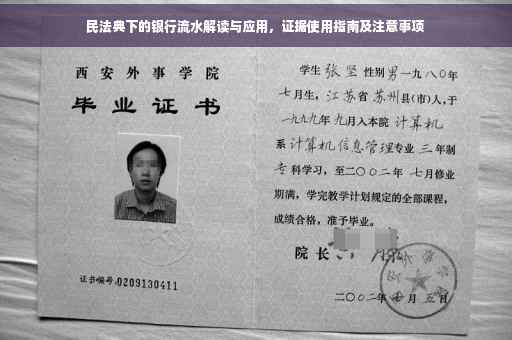 民法典下的银行流水解读与应用，证据使用指南及注意事项
西安外事学院
毕业证书
证书编号:0209130411
学生 张坚 性别男一九八〇年
七月生，江苏省苏州县(市)人，于
一九九九年九月入本院 计算机
系计算机信息管理专业 三 年制
专科学习，至二〇〇二年 七月修业
期满，学完教学计划规定的全部课程，
成绩合格，准予毕业。
院长
二〇〇二年 月五日